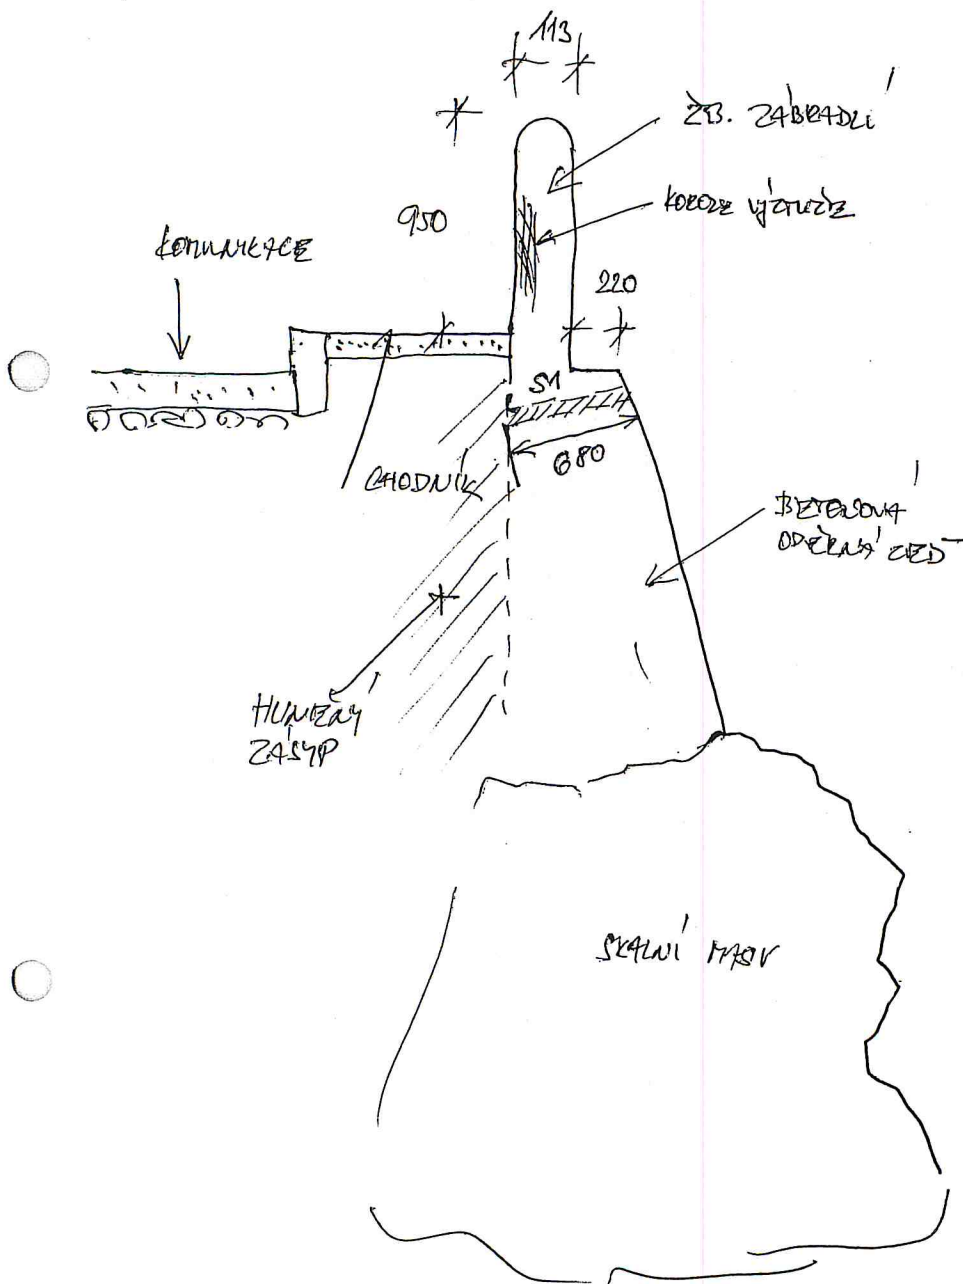 113
ŽB. ZÁBRADLÍ
KOROZE VÝZTUŽE
950
KOMUNIKACE
220
S1
680
CHODNÍK
BETONOVÁ
OPĚRNÁ ZEĎ
ZÁSYP
SKALNÍ MASIV